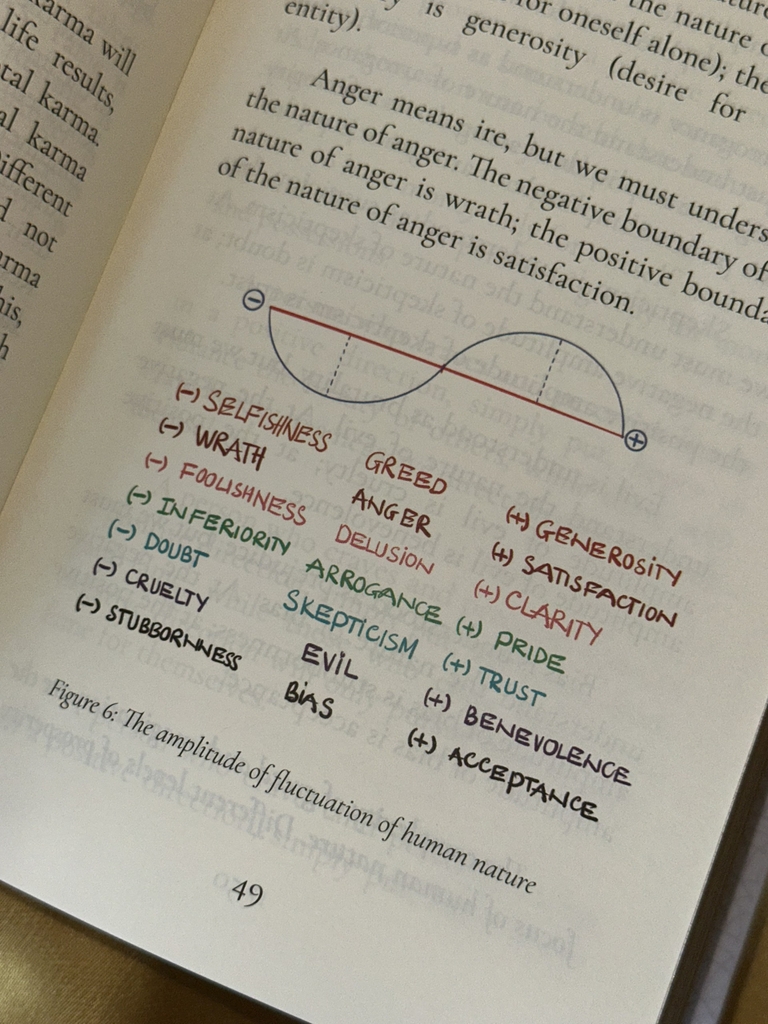 karma will
life results,
tal karma.
al karma
ifferent
d not
arma
his,
h
is generosity (desire for
for oneself alone); the
the nature
entity).
Anger means ire, but we must unders
the nature of anger. The negative boundary of
nature of anger is wrath; the positive bounda
of the nature of anger is satisfaction.
(-) SELFISHNESS GREED (+) GENEROSITY
(-) WRATH ANGER (+) SATISFACTION
(-) FOOLISHNESS DELUSION (+) CLARITY
(-) INFERIORITY ARROGANCE (+) PRIDE
(-) DOUBT SKEPTICISM (+) TRUST
(-) CRUELTY EVIL (+) BENEVOLENCE
(-) STUBBORNNESS BIAS (+) ACCEPTANCE
Figure 6: The amplitude of fluctuation of human nature
49